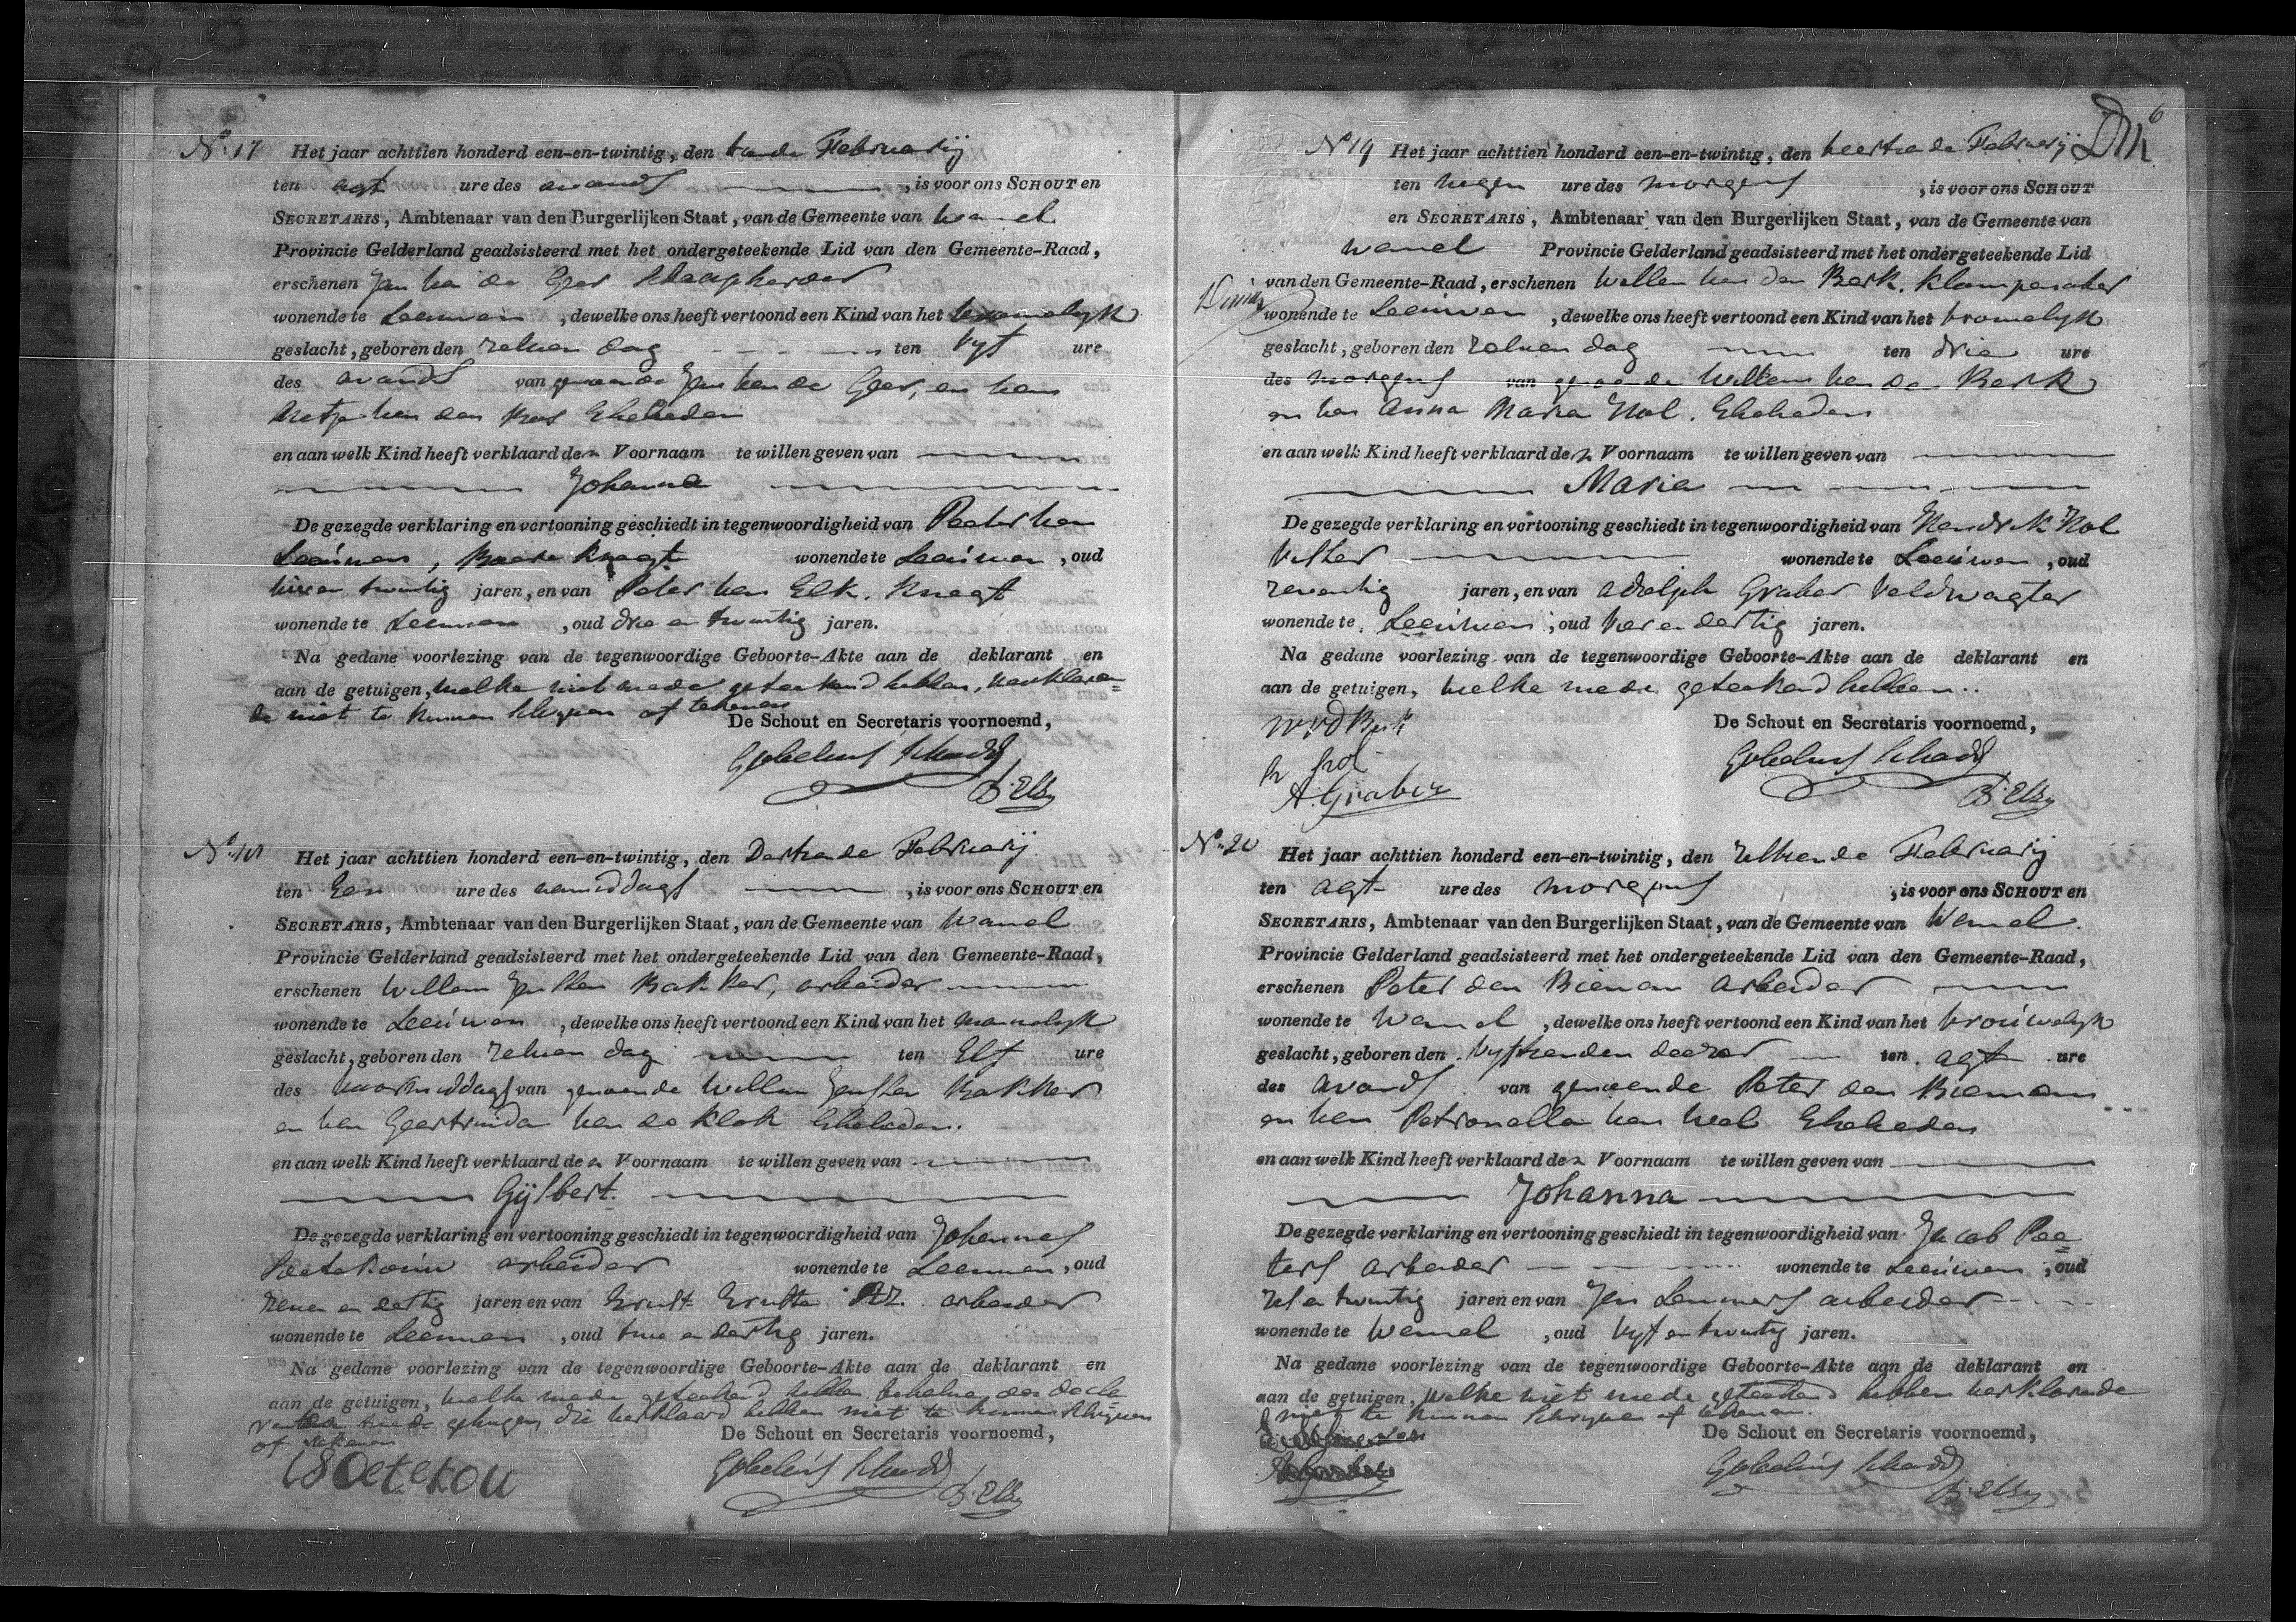 No. 17 Het jaar achttien honderd een-en-twintig, den Februarij
ten agt ure des avonds , is voor ons SCHOUT en
SECRETARIS, Ambtenaar van den Burgerlijken Staat, van de Gemeente van Wamel
Provincie Gelderland geadsisteerd met het ondergeteekende Lid van den Gemeente-Raad,
erschenen Jan van de Geer Schaapherder
wonende te Leeuwen , dewelke ons heeft vertoond een Kind van het
geslacht, geboren den zelven dag ten vyf ure
des avonds van genoemde Jan van de Geer, en van
van den Eheleden
en aan welk Kind heeft verklaard den Voornaam te willen geven van
Johanna
De gezegde verklaring en vertooning geschiedt in tegenwoordigheid van Peeter van
Leeuwen, Knegt wonende te Leeuwen , oud
twintig jaren, en van Peter van Elk. Knegt
wonende te Leeuwen , oud drie en twintig jaren.
Na gedane voorlezing van de tegenwoordige Geboorte-Akte aan de deklarant en
aan de getuigen, welke niet mede geteekend hebben, verklaren=
de niet te kunnen schryven of tekenen
De Schout en Secretaris voornoemd,
Het jaar achttien honderd een-en-twintig, den Dertiende Februarij
ten Een ure des namiddags , is voor ons SCHOUT en
SECRETARIS, Ambtenaar van den Burgerlijken Staat, van de Gemeente van Wamel
Provincie Gelderland geadsisteerd met het ondergeteekende Lid van den Gemeente-Raad,
erschenen Willem Janssen Bakker, arbeider
wonende te Leeuwen , dewelke ons heeft vertoond een Kind van het mannelyk
geslacht, geboren den zelven dag ten Elf ure
des voormiddags van genoemde Willem Janssen Bakker
en van Geertruida van de Klok Eheleden.
en aan welk Kind heeft verklaard den Voornaam te willen geven van
Gijsbert.
De gezegde verklaring en vertooning geschiedt in tegenwoordigheid van Johannes
arbeider wonende te Leeuwen , oud
zeven en dertig jaren en van Ernst arbeider
wonende te Leeuwen , oud twee en dertig jaren.
Na gedane voorlezing van de tegenwoordige Geboorte-Akte aan de deklarant en
aan de getuigen, welke mede geteekend hebben behalve de decla
getuigen die verklaard hebben niet te kunnen schrijven
of tekenen
De Schout en Secretaris voornoemd,
6
No 19 Het jaar achttien honderd een-en-twintig, den veertiende Februarij
ten negen ure des morgens , is voor ons SCHOUT
en SECRETARIS, Ambtenaar van den Burgerlijken Staat, van de Gemeente van
Wamel Provincie Gelderland geadsisteerd met het ondergeteekende Lid
van den Gemeente-Raad, erschenen Willem van den Berk. Klompemaker
wonende te Leeuwen , dewelke ons heeft vertoond een Kind van het vrouwelyk
geslacht, geboren den zelven dag ten drie ure
des morgens van genoemde Willem van den Berk
en van Anna Maria Hol. Eheleden
en aan welk Kind heeft verklaard den Voornaam te willen geven van
Maria
De gezegde verklaring en vertooning geschiedt in tegenwoordigheid van Hendrik Hol
wonende te Leeuwen , oud
zeventig jaren, en van Adolph Graber Veldwagter
wonende te Leeuwen , oud vier en dertig jaren.
Na gedane voorlezing van de tegenwoordige Geboorte-Akte aan de deklarant en
aan de getuigen, welke mede geteekend hebben.
De Schout en Secretaris voornoemd,
h hol
A. Graber
No. 20 Het jaar achttien honderd een-en-twintig, den Zestiende Februarij
ten agt ure des morgens , is voor ons SCHOUT en
SECRETARIS, Ambtenaar van den Burgerlijken Staat, van de Gemeente van Wamel.
Provincie Gelderland geadsisteerd met het ondergeteekende Lid van den Gemeente-Raad,
erschenen Peter den Bieman Arbeider
wonende te Wamel , dewelke ons heeft vertoond een Kind van het vrouwelyk
geslacht, geboren den vyftienden deezer ten agt ure
des avonds van genoemde Peter den Bieman
en van Petronella van Eheleden
en aan welk Kind heeft verklaard den Voornaam te willen geven van
Johanna
De gezegde verklaring en vertooning geschiedt in tegenwoordigheid van Jacob Pee=
ters arbeider wonende te Leeuwen , oud
zes en twintig jaren en van Jan Lemmers arbeider
wonende te Wamel , oud vyf en twintig jaren.
Na gedane voorlezing van de tegenwoordige Geboorte-Akte aan de deklarant en
aan de getuigen, welke niet mede geteekend hebben verklarende
niet te kunnen schryven of tekenen.
De Schout en Secretaris voornoemd,